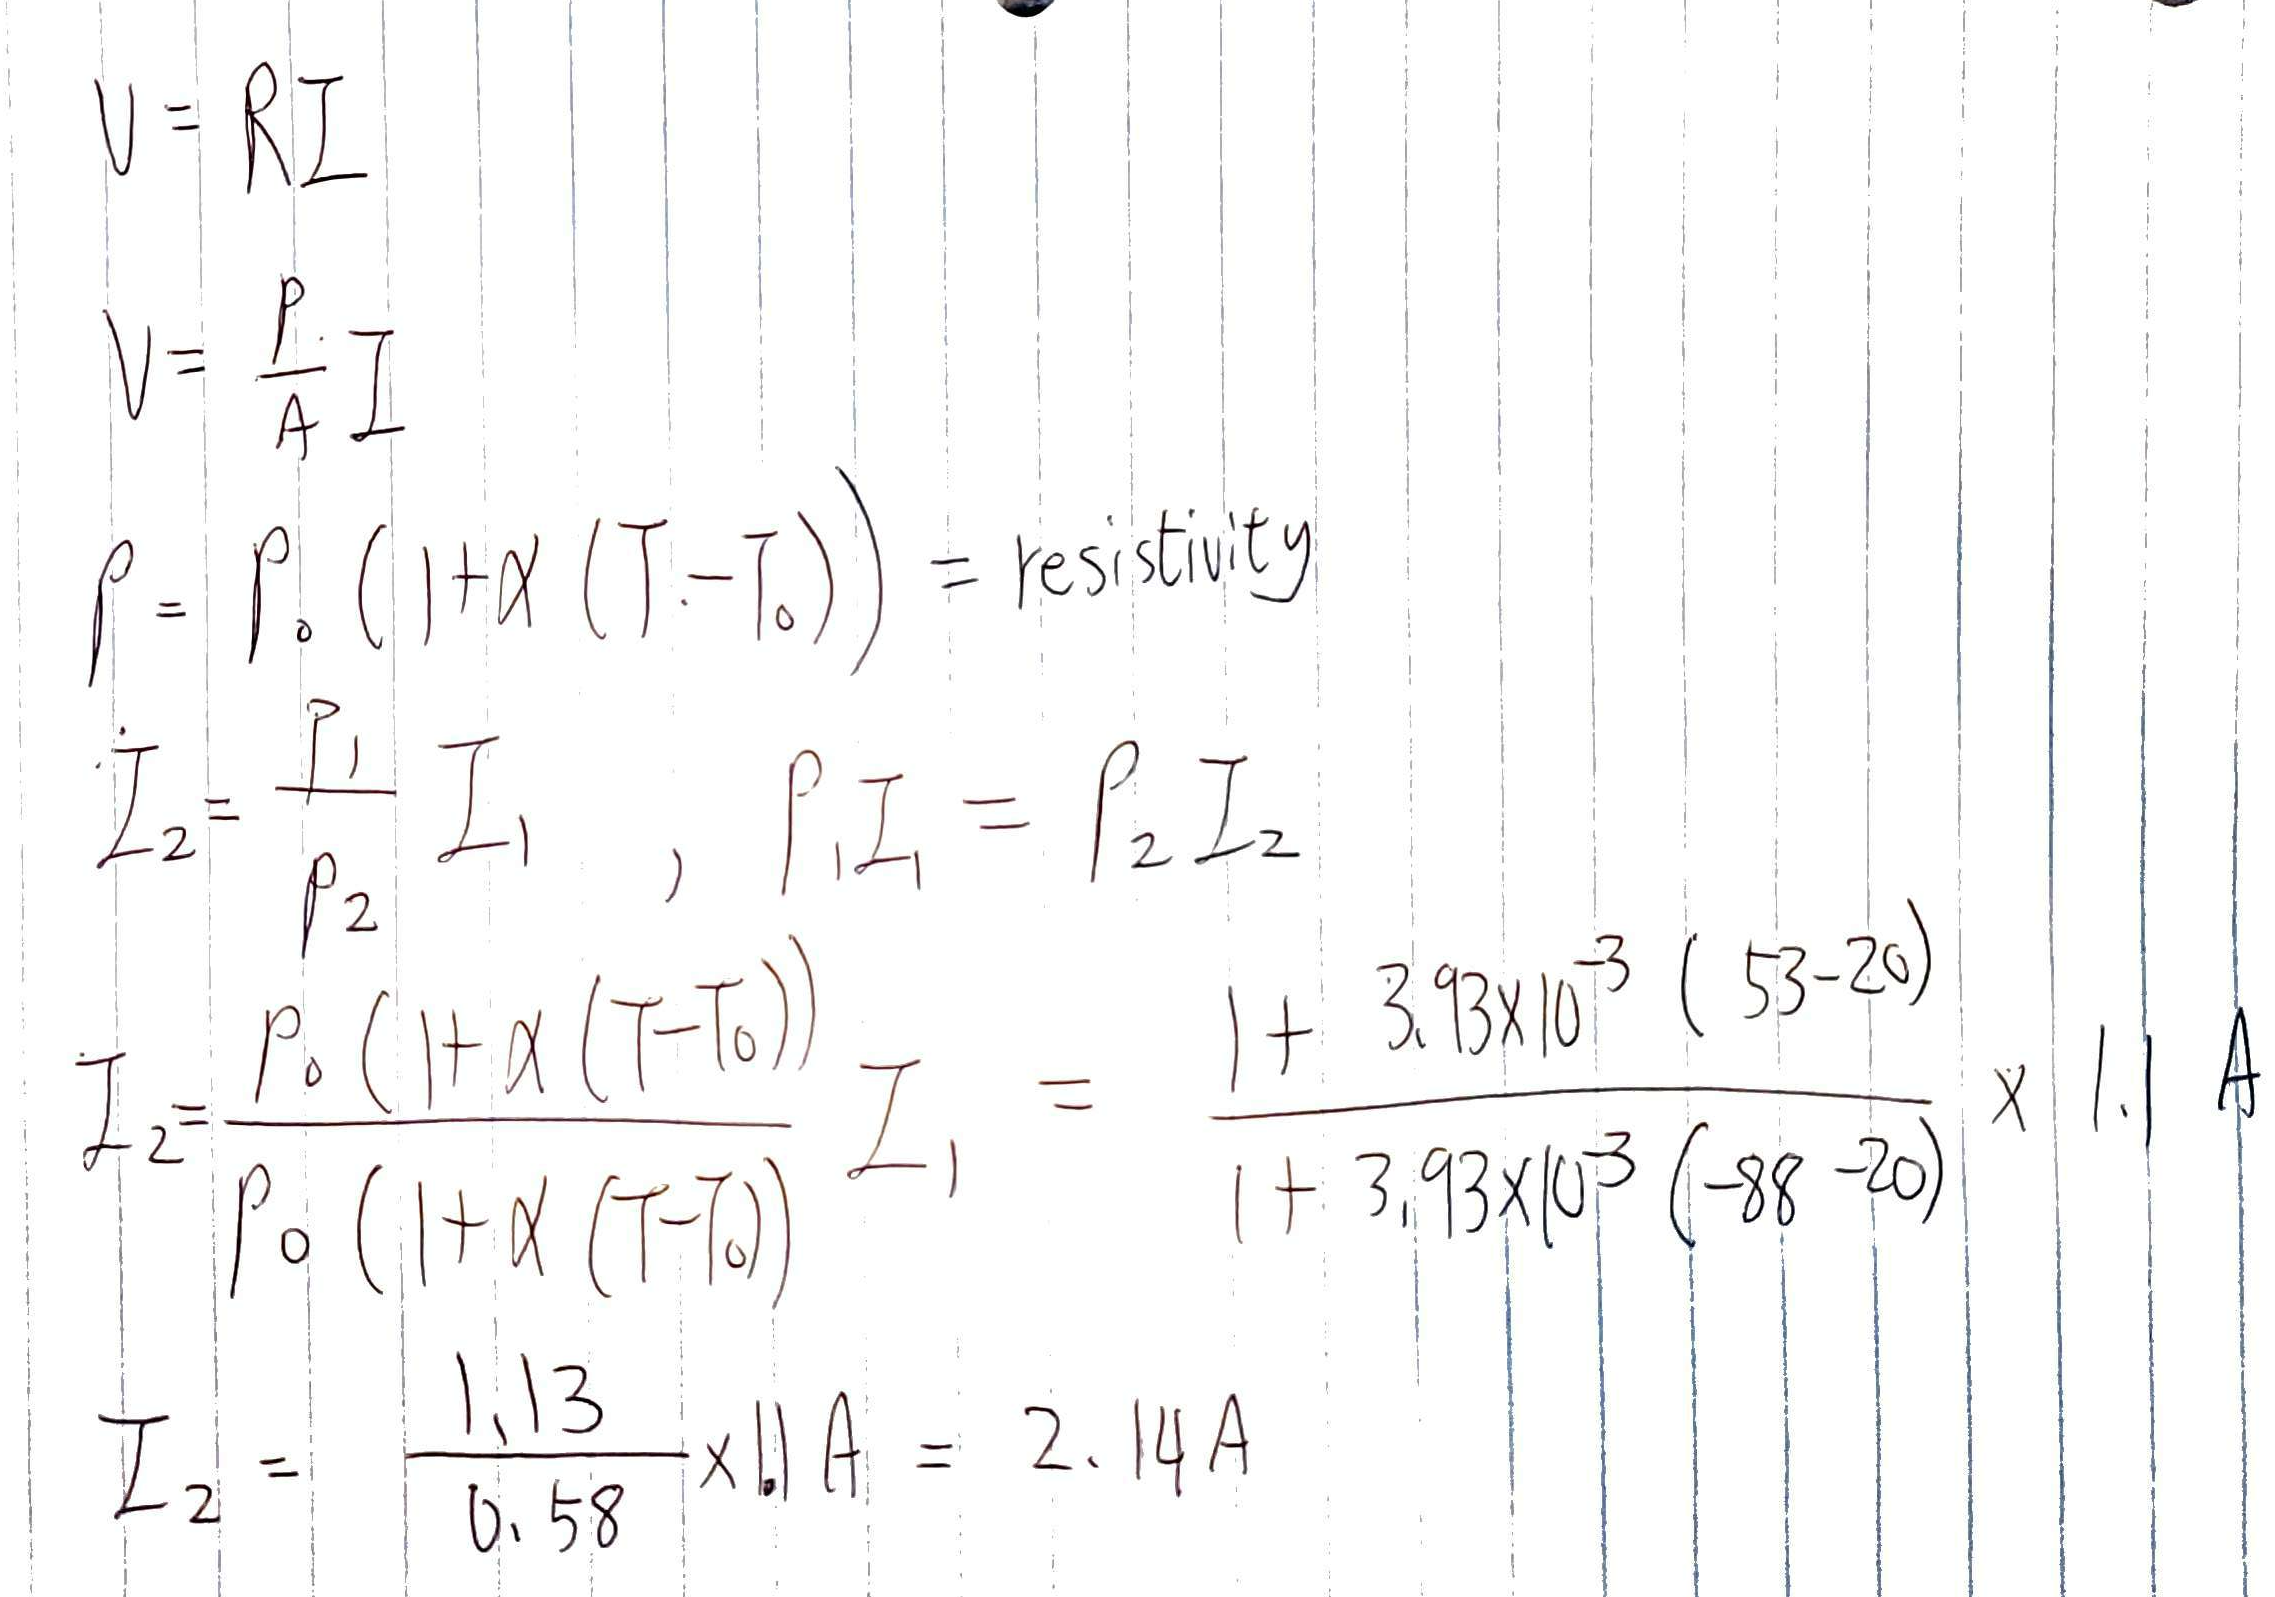 V = RI
V = ρ/A I
ρ = ρ₀ (1+α (T-T₀)) = resistivity
I₂ = ρ₁/ρ₂ I₁ , ρ₁I₁ = ρ₂I₂
I₂ = ρ₀ (1+α (T-T₀))/ρ₀ (1+α (T-T₀)) I₁ = 1 + 3.93x10⁻³ (53-20)/1 + 3.93x10⁻³ (-88-20) x 1.1 A
I₂ = 1.13/0.58 x 1.1 A = 2.14 A